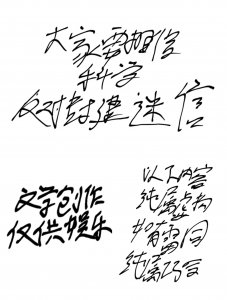 大家要相信
科学
反对封建迷信
文学创作
仅供娱乐
以下内容
纯属虚构
如有雷同
纯属巧合